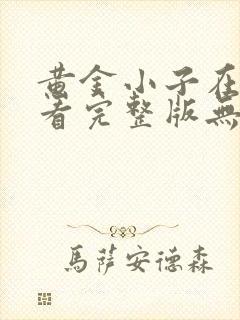 黄金小子在
看完整版無
馬薩安德森